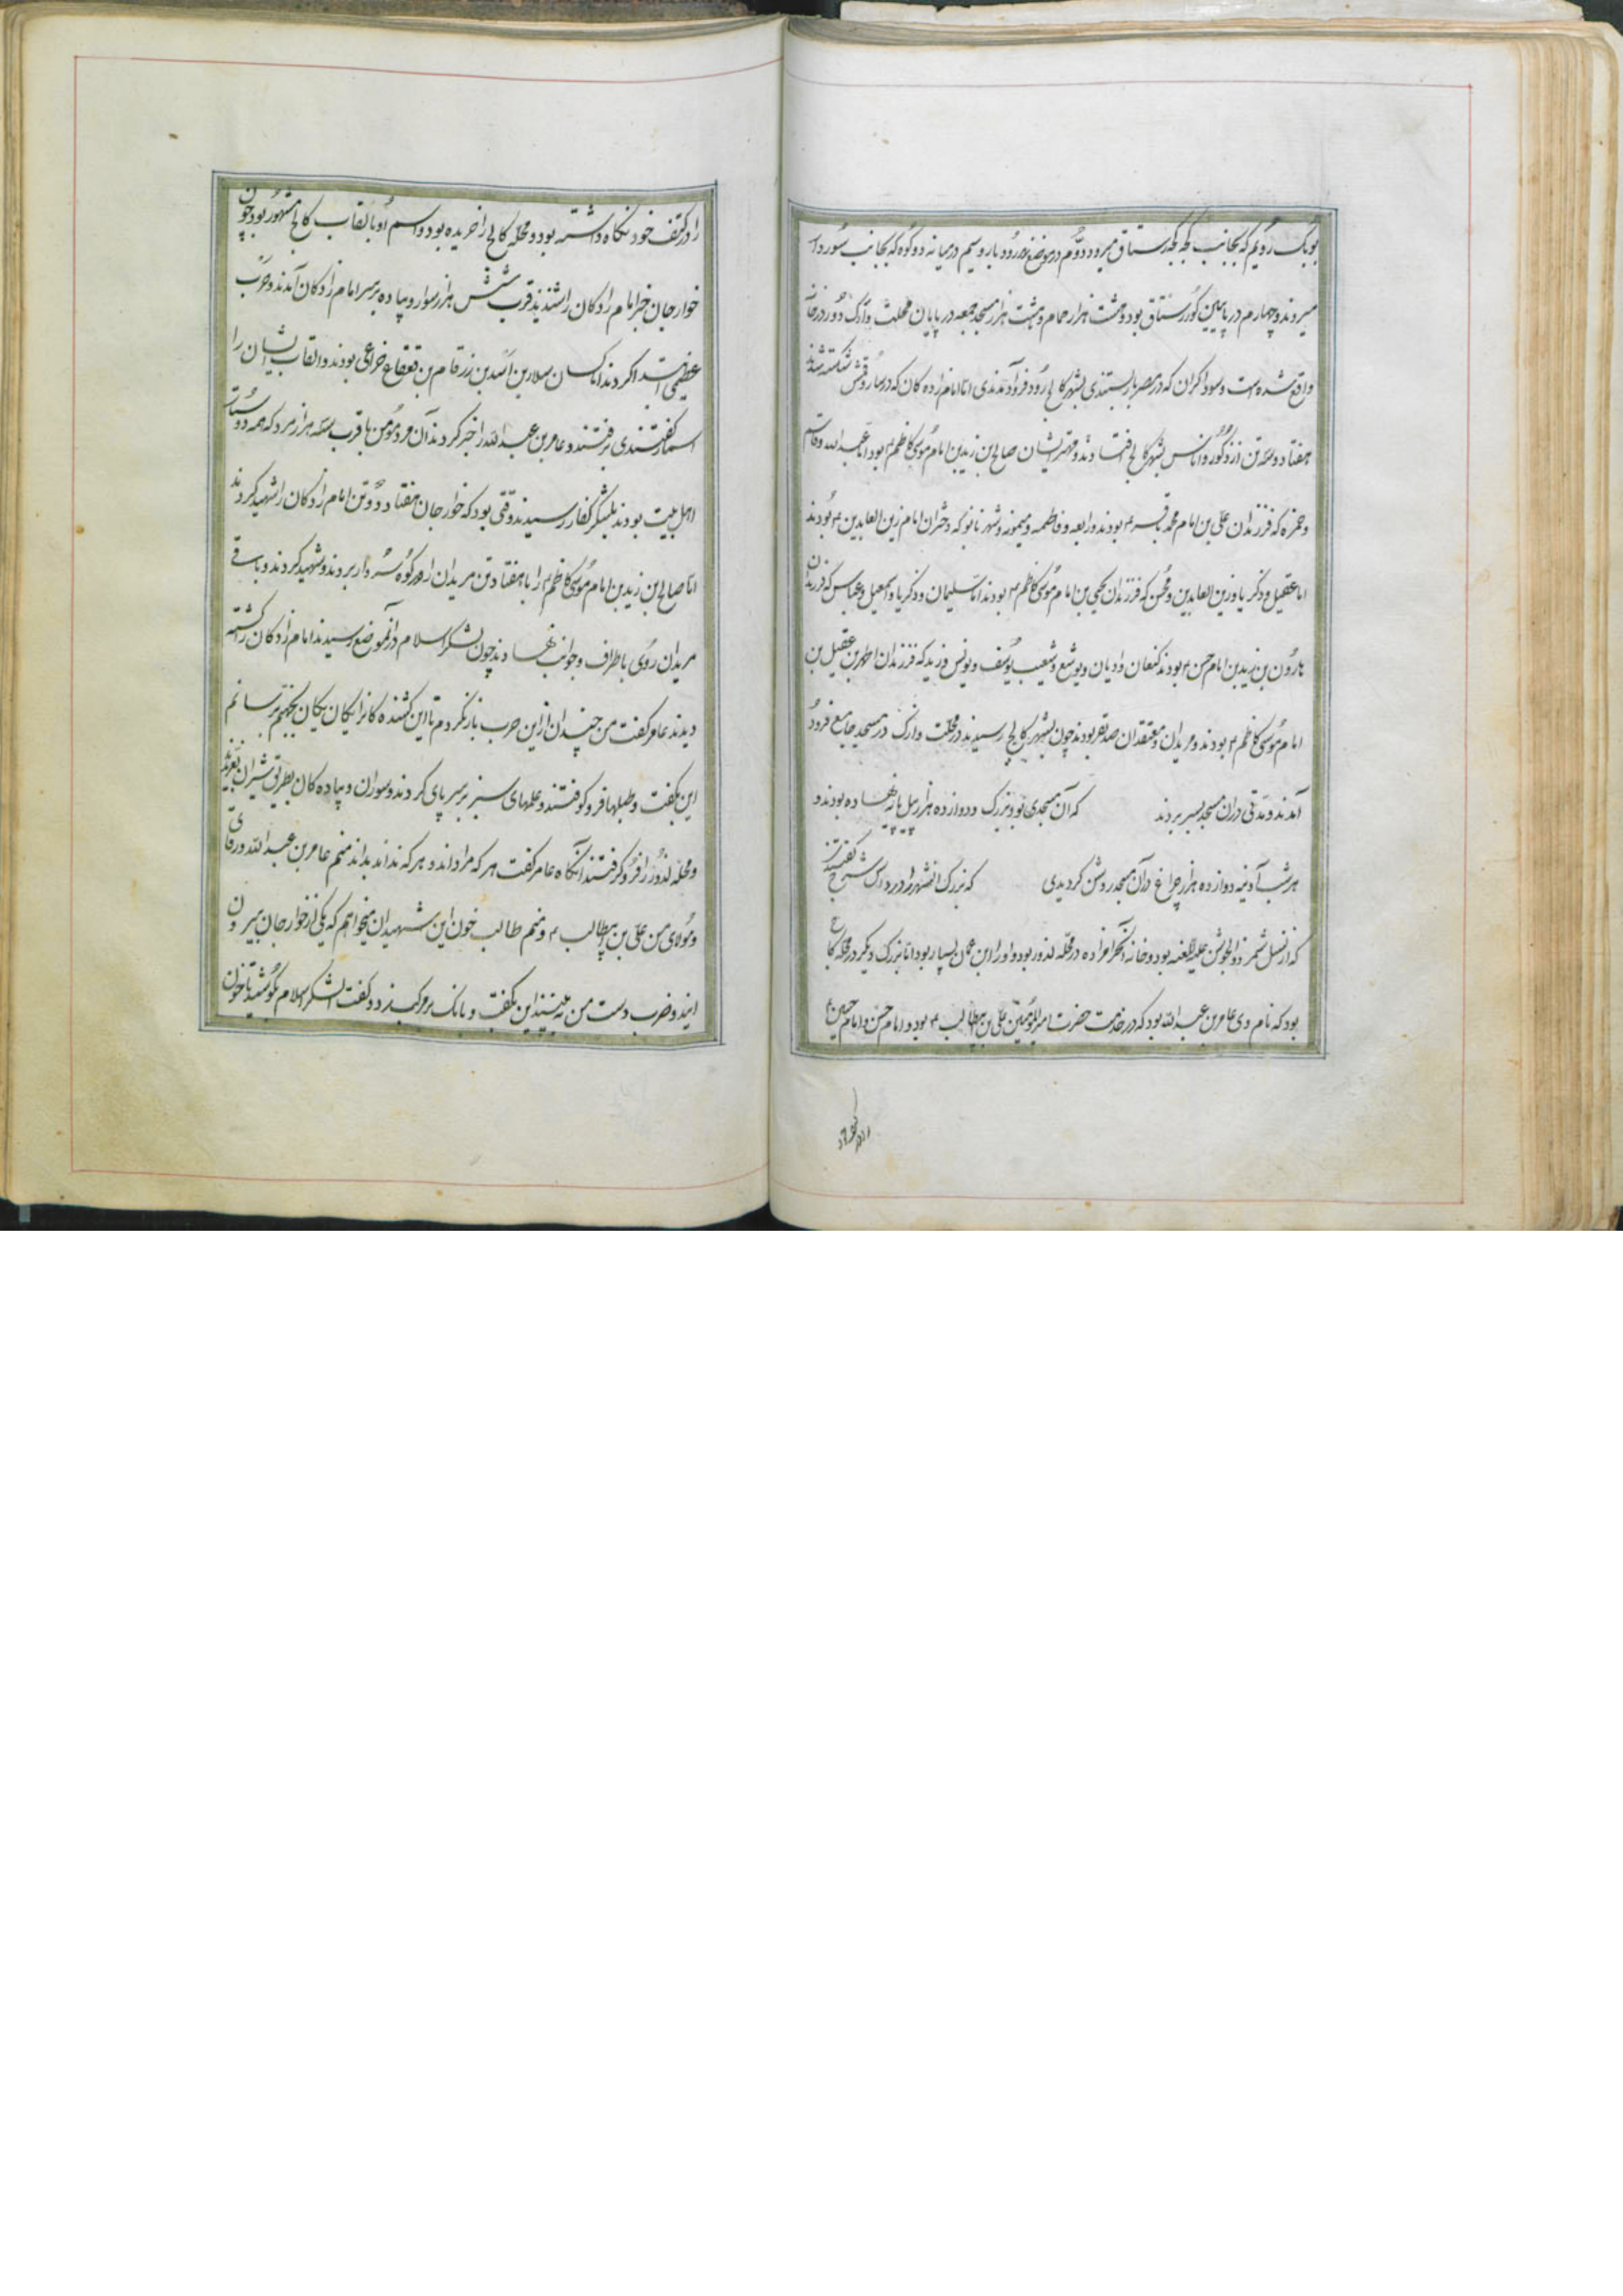 بوبک رویم که بجانب کجه کجه رستاق میرود و دوم در موضع رود بار و سیم در میانه دو کوه که بجانب سوردار
میروند و چهارم در پایین کور رستاق بود و هشت هزار حمام و هشت هزار مسجد جمعه در پایان محلت وازک دور درخانه
واقع شده است و سوداگران که در مصر بار بستندی بشهر کالج رود فرود آمدندی اما امام زاده کان که در سارو قمش شکسته شدند
هفتاد و سه تن از ذکور و اناس بشهر کالج افتادند و مهتر ایشان صالح بن زید بن امام موسی کاظم ۴ بود اما عبد الله و قاسم
و حمزه که فرزندان علی بن امام محمد باقر ۴ بودند و رابعه و فاطمه و میمونه و شهر بانو که دختران امام زین العابدین ۴ بودند
اما عقیل و ذکریا و زین العابدین و محسن که فرزندان یحیی بن امام موسی کاظم ۴ بودند اما سلیمان و ذکریا و اسمعیل و عباس که فرزندان
هارون بن زید بن امام حسن ۴ بودند کنعان و ادیان و یوشع و شعیب و یوسف و یونس و زید که فرزندان اطهر بن عقیل بن
امام موسی کاظم ۴ بودند و مریدان و معتقدان صد نفر بودند چون بشهر کالج رسیدند در محلت وازک در مسجد جامع فرود
آمدند و مدتی در آن مسجد بسر بردند که آن مسجدی بود بزرگ و دوازده هزار پیل پایه نهاده بودند و
هر شب آدینه دوازده هزار چراغ در آن مسجد روشن کردیدی که بزرگ آنشهر را شیخ گفتندی
که از نسل شمر ذوالجوشن علیه اللعنه بود و خانه آنحرامزاده در محله لذور بود و او را ابن عمان بسیار بود اما بزرگ دیگر در محله کالج
بود که نام وی عامر بن عبد الله بود که در خدمت حضرت امیر المؤمنین علی بن ابیطالب ۴ بود و امام حسن و امام حسین ۴
را در کتف خود نگاه داشته بود و محله کالج را خریده بود و اسم او بالقاب کالج مشهور بود چون
خوارجان خبر امام زادکان را شنیدند قرب شش هزار سوار و پیاده بر سر امام زادکان آمدند و حرب
عظیمی ابتدا کردند اما کسان سلار بن اسد بن زرقام بن قعقاع خزاعی بودند و القاب ایشان را
اسمار گفتندی برفتند و عامر بن عبد الله را خبر کردند آن مرد مومن با قرب سه هزار مرد که همه دوستان
اهل بیت بودند بلشکر کفار رسیدند وقتی بود که خوارجان هفتاد و دو تن امام زادکان را شهید کردند
اما صالح بن زید بن امام موسی کاظم ۴ را با هفتاد تن مریدان او بر کوه سردار بردند و شهید کردند و باقی
مریدان روی باطراف و جوانب نهادند چون لشکر اسلام در آنموضع رسیدند امام زادکان را کشته
دیدند عامر گفت من چندان از این حرب باز نکردم تا این کشنده کان را یکان یکان بجهنم نرسانم
این بگفت و طبلها فرو کوفتند و علمهای سبز بر سر پای کردند و سواران و پیاده کان بطریق شیران بغریدند
و محله لذور را فرو گرفتند آنگاه عامر گفت هر که مرا داند و هر که نداند بداند منم عامر بن عبد الله ورقای
و مولای من علی بن ابیطالب ۴ و منم طالب خون این شهیدان میخواهم که یکی از خوارجان بیرون
ایند و ضرب دست من ببینند این بگفت و بانک بر مرکب زد و گفت ای لشکر اسلام بکوشید تا خون